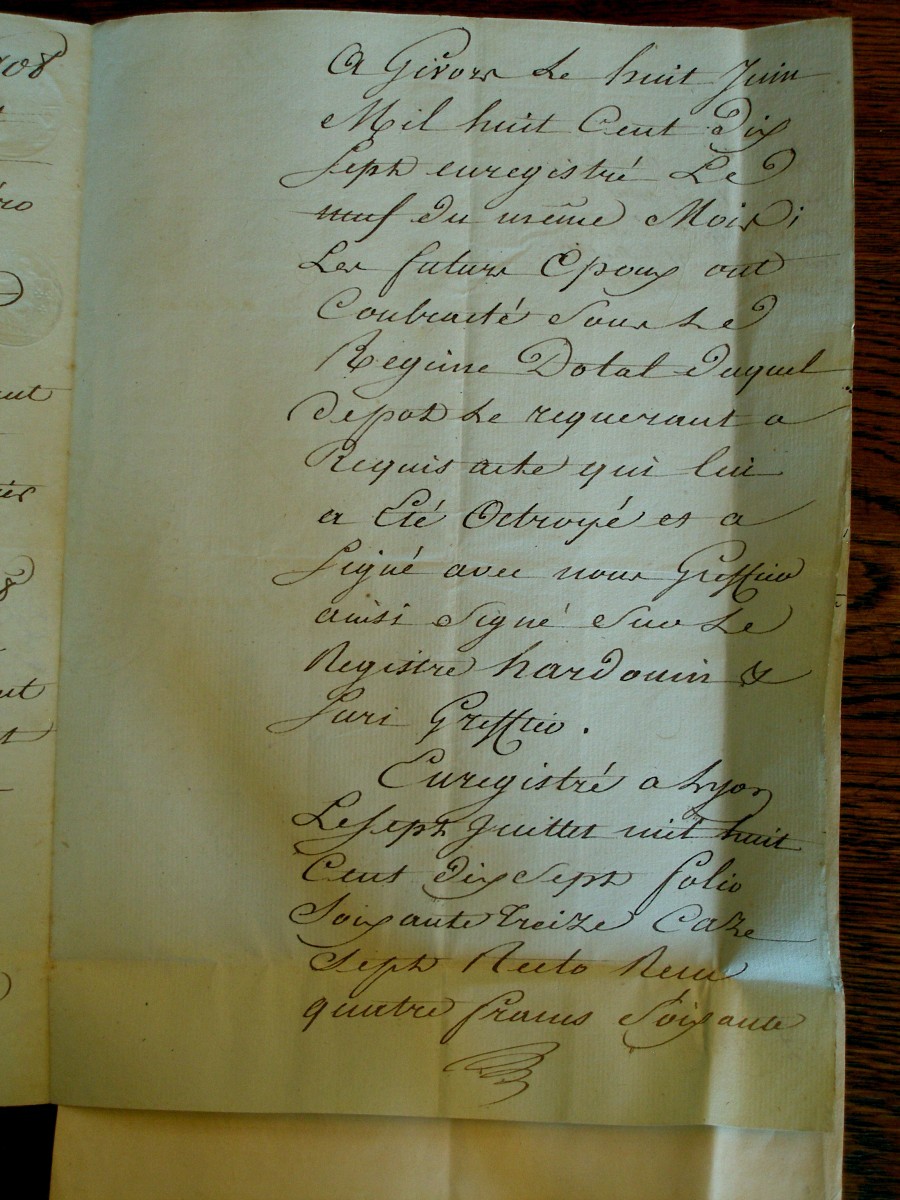 108
A Givors Le huit Juin
Mil huit Cent Dix
Sept enregistré Le
neuf du même Mois;
Les futurs Epoux ont
Contracté Sous Le
Regime Dotal duquel
depot Le requerant a
Requis acte qui lui
a Eté Octroyé et a
Signé avec nous Greffier
ainsi Signé Sur Le
Registre hardouin &
Luri Greffier.
Enregistré a Lyon
Le sept Juillet mil huit
Cent dix Sept folio
Soixante Treize Caze
Sept Recto Recu
quatre francs Soixante